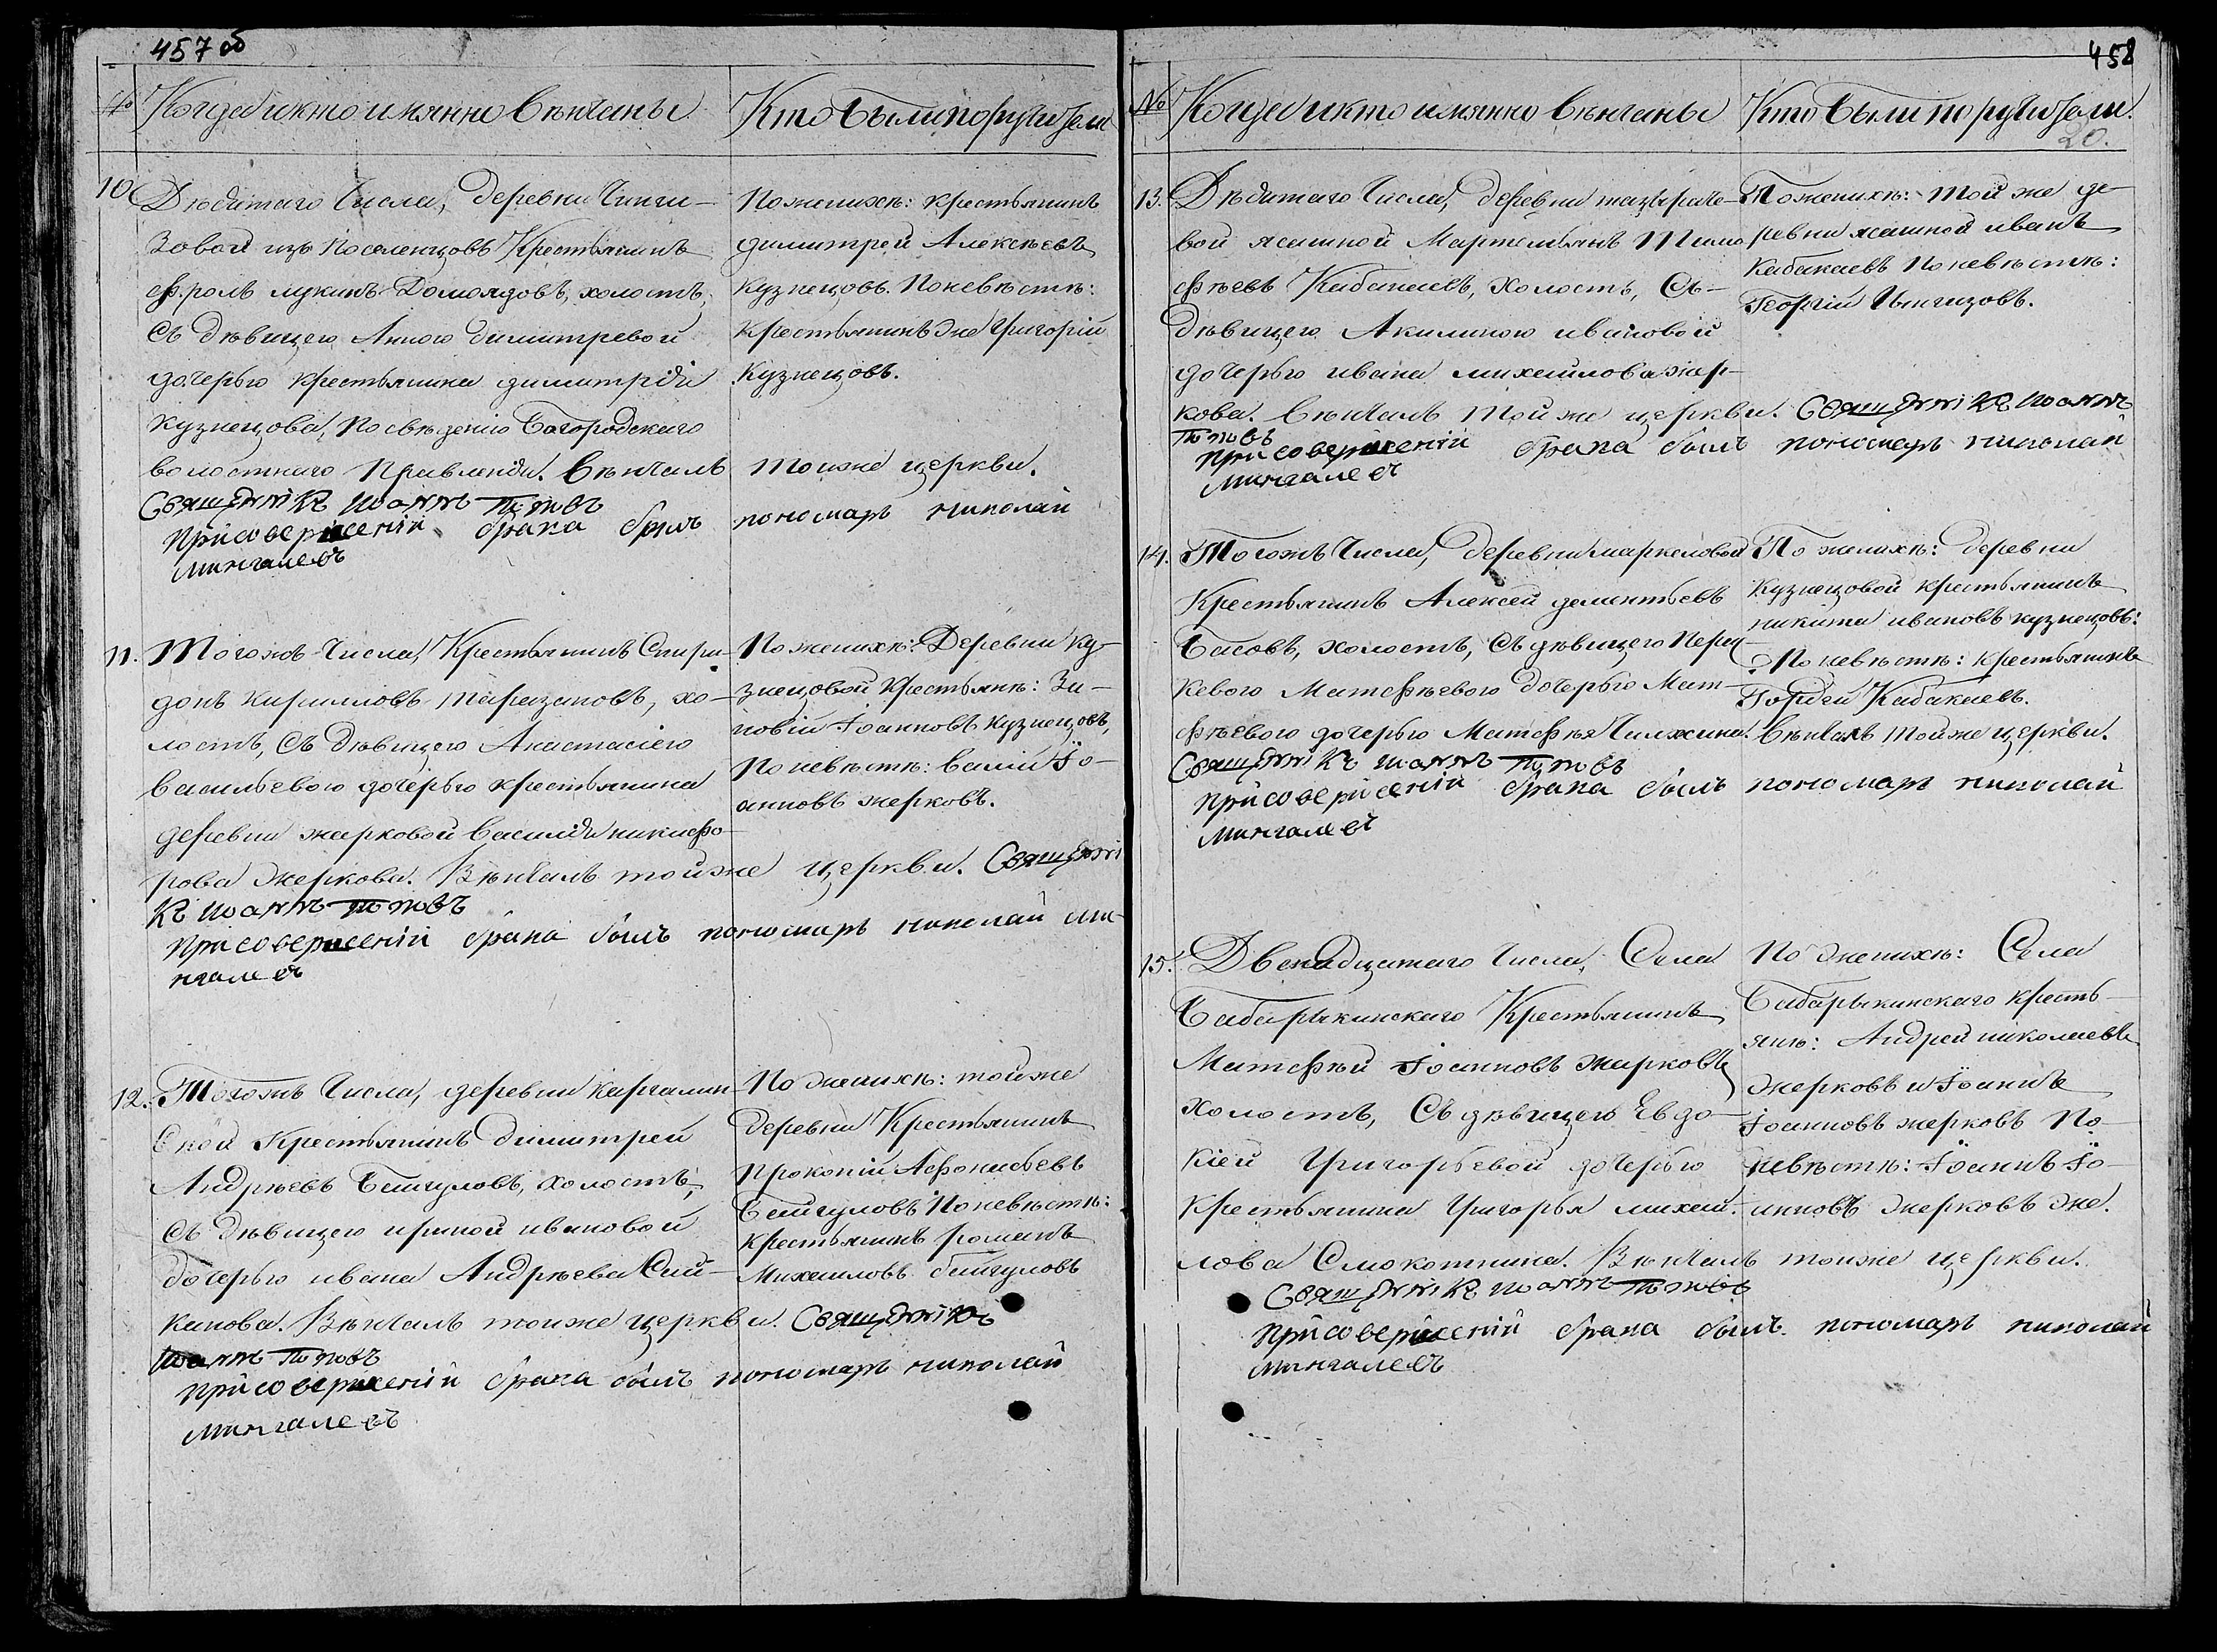 457 об
№ Когда и кто имянно венчаны
Кто были поручители
10. Девятаго Числа, деревни Чинги-
зовой изъ поселенцовъ Крестьянинъ
Фролъ Лукинъ Домоядовъ, холостъ,
Съ девицею Анною димитревой
дочерью крестьянина димитрія
кузнецова, по сведенію Богородскаго
волостнаго Правленія. Венчалъ тойже церкви.
Священнікъ Иоаннъ Поповъ
При совершеніи брака былъ пономарь николай
мингалевъ
По женихе: крестьянинъ
димитрей Алексеевъ
кузнецовъ. По невесте:
крестьянинъ же Григорій
Кузнецовъ.
11. Тогожъ Числа, Крестьянинъ Спири-
донъ кирилловъ Таразановъ, хо-
лостъ, Съ девицею Анастасіею
васильевою дочерью крестьянина
деревни жарковой василія никифо-
рова Жаркова. Венчалъ тойже церкви. Священні
къ Иоаннъ Поповъ
При совершеніи брака былъ пономарь николай ми-
нгалевъ
По женихе: Деревни ку-
знецовой Крестьяне: Зи-
новій Іоанновъ кузнецовъ,
По невесте: васіли Іо-
анновъ жарковъ.
12. Тогожъ Числа, деревни каргалин-
Ской Крестьянинъ димитрей
Андреевъ Бейгуловъ, холостъ,
Съ девицею ириной ивановой
дочерью ивана Андреева Сай-
канова. Венчалъ тойже церкви. Священнікъ
Иоаннъ Поповъ
При совершеніи брака былъ пономарь николай
мингалевъ
По женихе: тойже
деревни Крестьянинъ
Прокопій Афонасьевъ
Бейгуловъ По невесте:
крестьянинъ романъ
Михайловъ бейгуловъ
458
20.
№ Когда и кто имянно венчаны
Кто были поручители.
13. Девятаго Числа, деревни тазыраче-
вой ясашной Мартемьянъ Тимо
феевъ Кабакаевъ, Холостъ, Съ-
девицею Акилиною ивановой
дочерью ивана михайлова жар-
кова. Венчалъ тойже церкви. Священнікъ Иоаннъ
Поповъ
При совершеніи брака былъ пономарь николай
мингалевъ
По женихе: той же де-
ревни ясашной иванъ
кабакаевъ По невесте:
Георгій Чингизовъ.
14. Тогожъ Числа, деревни маркеловой
Крестьянинъ Алексей дементьевъ
Басовъ, холостъ, Съ девицею Парас
кевою Матфеевою дочерью Мат-
феевою дочерью Матфея Чилжина. Венчалъ тойже церкви.
Священнікъ Иоаннъ Поповъ
При совершеніи брака былъ пономарь николай
мингалевъ
По женихе: деревни
кузнецовой крестьянинъ
никита ивановъ кузнецовъ:
По невесте: крестьянинъ
Гордей Кабакаевъ.
15. Двенадцатаго Числа, Села
Бабарыкинскаго Крестьянинъ
Матфей Іоанновъ жарковъ
холостъ, Съ девицею Евдо-
кіей Григорьевой дочерью
крестьянина Григорья михай-
лова Смокотнина. Венчалъ тойже церкви.
Священнікъ Иоаннъ Поповъ
При совершеніи брака былъ пономарь николай
мингалевъ
По женихе: Села
Бабарыкинскаго кресть-
яне: Андрей николаевъ
жарковъ и Іоаннъ
Іоанновъ жарковъ По
невесте: Іоаннъ Іо-
анновъ жарковъ же.